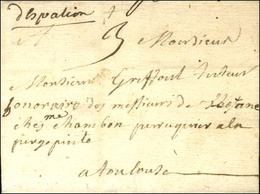 d'espalion
3 a Monsieur
a Monsieur Griffoul tuteur
honoraire des messieurs de
ches me chambon perruquier a la
pergepinte
a toulouse